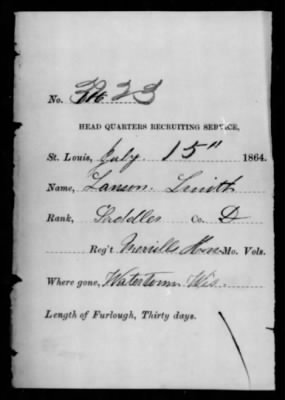 No. 23
HEAD QUARTERS RECRUITING SERVICE,
St. Louis, July 15" 1864.
Name, Lanson Smith
Rank, Saddler Co. D
Reg't Merrills Horse Mo. Vols.
Where gone, Watertown Wis.
Length of Furlough, Thirty days.